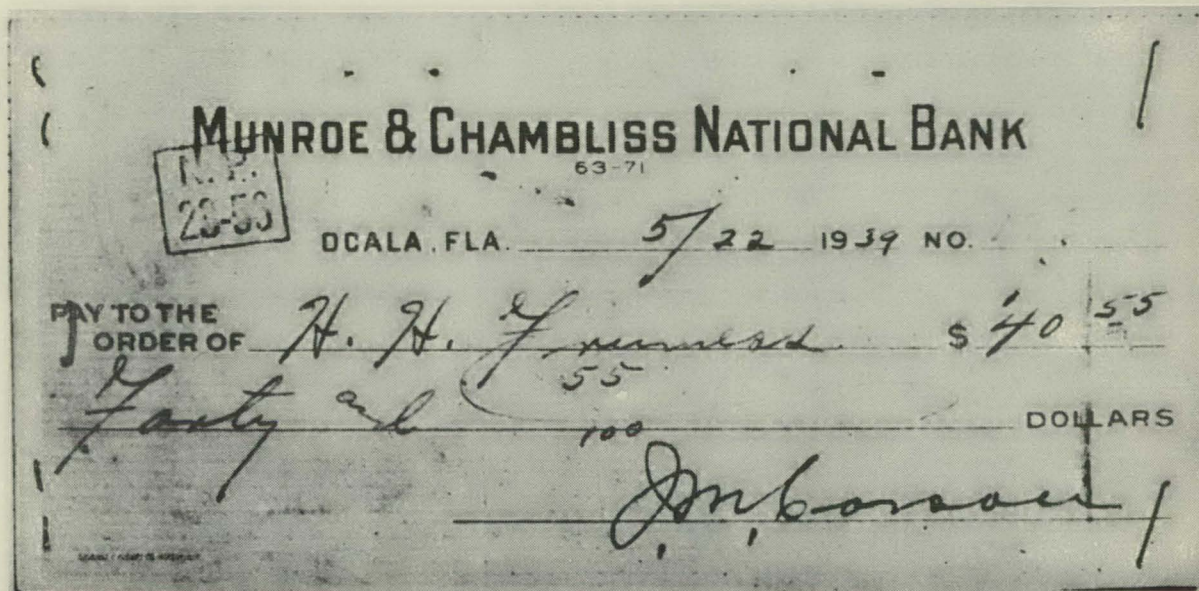 MUNROE & CHAMBLISS NATIONAL BANK
63-71
OCALA, FLA. 5/22 1939 NO.
PAY TO THE
ORDER OF H. H. $ 40 55
Forty and 55/100 DOLLARS
J. M.